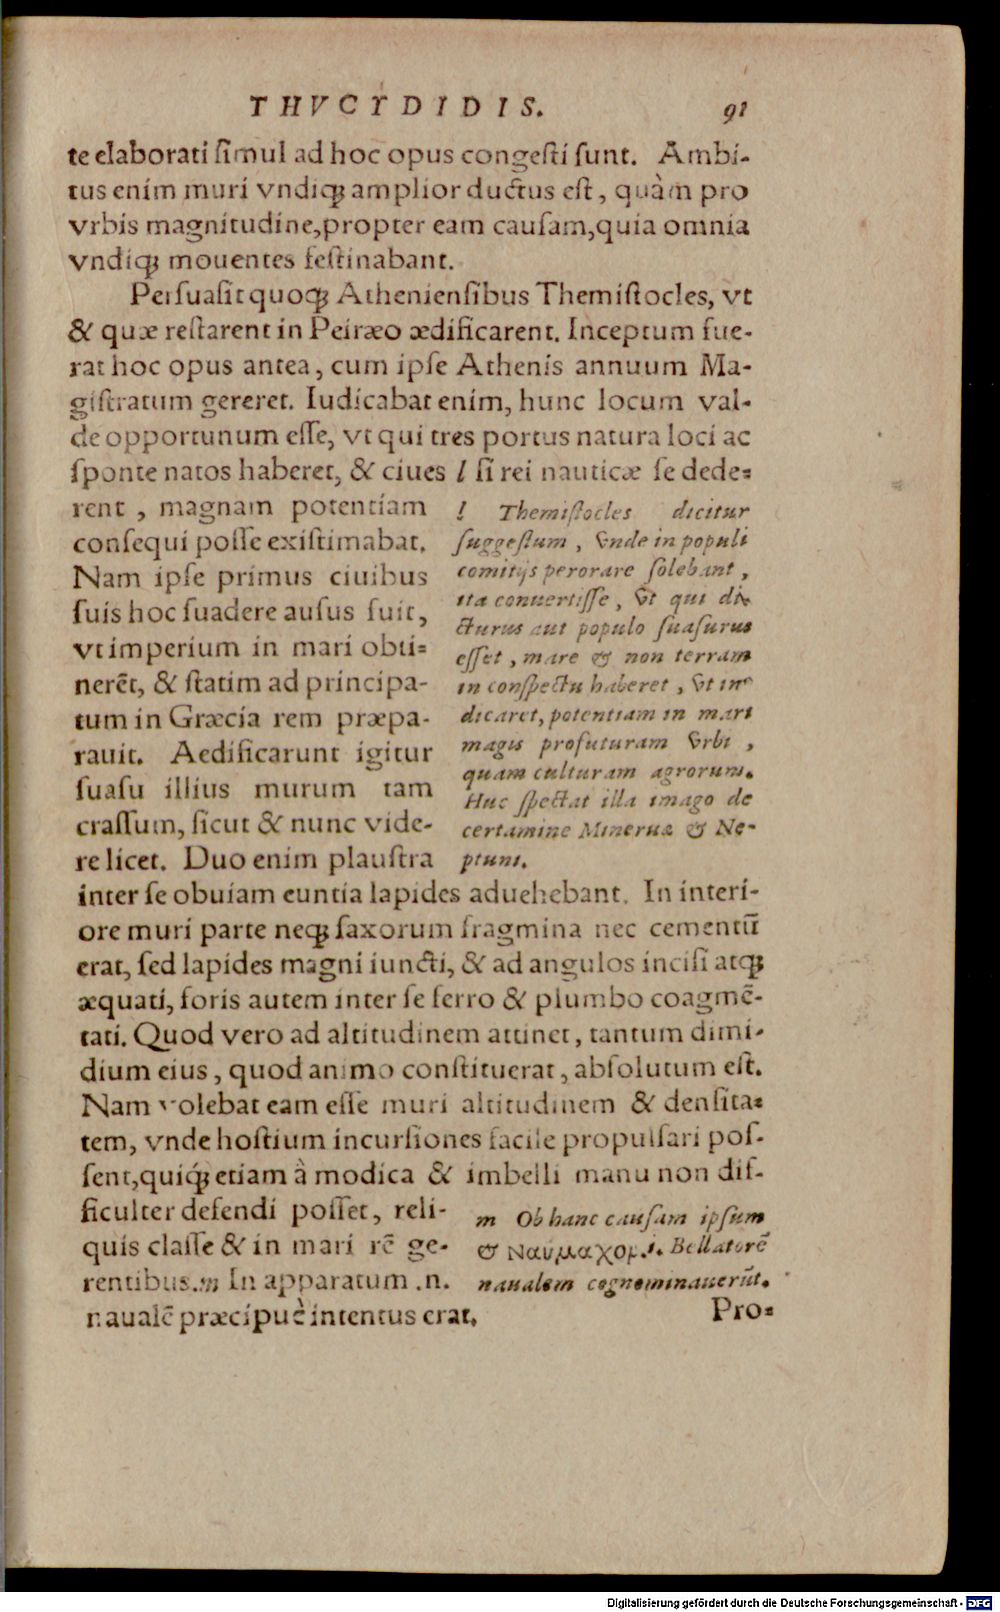 THVCYDIDIS. 91
te elaborati ſimul ad hoc opus congeſti ſunt. Ambi-
tus enim muri vndiq́; amplior ductus eſt, quàm pro
vrbis magnitudine,propter eam cauſam,quia omnia
vndiq́; mouentes feſtinabant.
Perſuaſit quoq́; Athenienſibus Themiſtocles, vt
& quæ reſtarent in Peiræo ædificarent. Inceptum fue-
rat hoc opus antea, cum ipſe Athenis annuum Ma-
giſtratum gereret. Iudicabat enim, hunc locum val-
de opportunum eſſe, vt qui tres portus natura loci ac
ſponte natos haberet, & ciues l ſi rei nauticæ ſe dede-
rent, magnam potentiam
conſequi poſſe exiſtimabat.
Nam ipſe primus ciuibus
ſuis hoc ſuadere auſus fuit,
vt imperium in mari obti-
nerēt, & ſtatim ad principa-
tum in Græcia rem præpa-
rauit. Aedificarunt igitur
ſuaſu illius murum tam
craſſum, ſicut & nunc vide-
re licet. Duo enim plauſtra
l Themiſtocles dicitur
ſuggeſtum, vnde in populi
comitijs perorare ſolebant,
ita conuertiſſe, vt qui di-
cturus aut populo ſuaſurus
eſſet, mare & non terram
in conſpectu haberet, vt in-
dicaret, potentiam in mari
magis profuturam vrbi,
quam culturam agrorum.
Huc ſpectat illa imago de
certamine Mineruæ & Ne-
ptuni.
inter ſe obuiam euntia lapides aduehebant. In interi-
ore muri parte neq́; ſaxorum fragmina nec cementū
erat, ſed lapides magni iuncti, & ad angulos inciſi atq́;
æquati, foris autem inter ſe ferro & plumbo coagmē-
tati. Quod vero ad altitudinem attinet, tantum dimi-
dium eius, quod animo conſtituerat, abſolutum eſt.
Nam volebat eam eſſe muri altitudinem & denſita-
tem, vnde hoſtium incurſiones facile propulſari poſ-
ſent,quiq́; etiam à modica & imbelli manu non dif-
ficulter defendi poſſet, reli-
quis claſſe & in mari rē ge-
rentibus.m In apparatum .n.
naualē præcipuè intentus erat.
m Ob hanc cauſam ipſum
& Ναύμαχομ.i. Bellatorē
naualem cognominauerūt.
Pro-
Digitalisierung gefördert durch die Deutsche Forschungsgemeinschaft - DFG